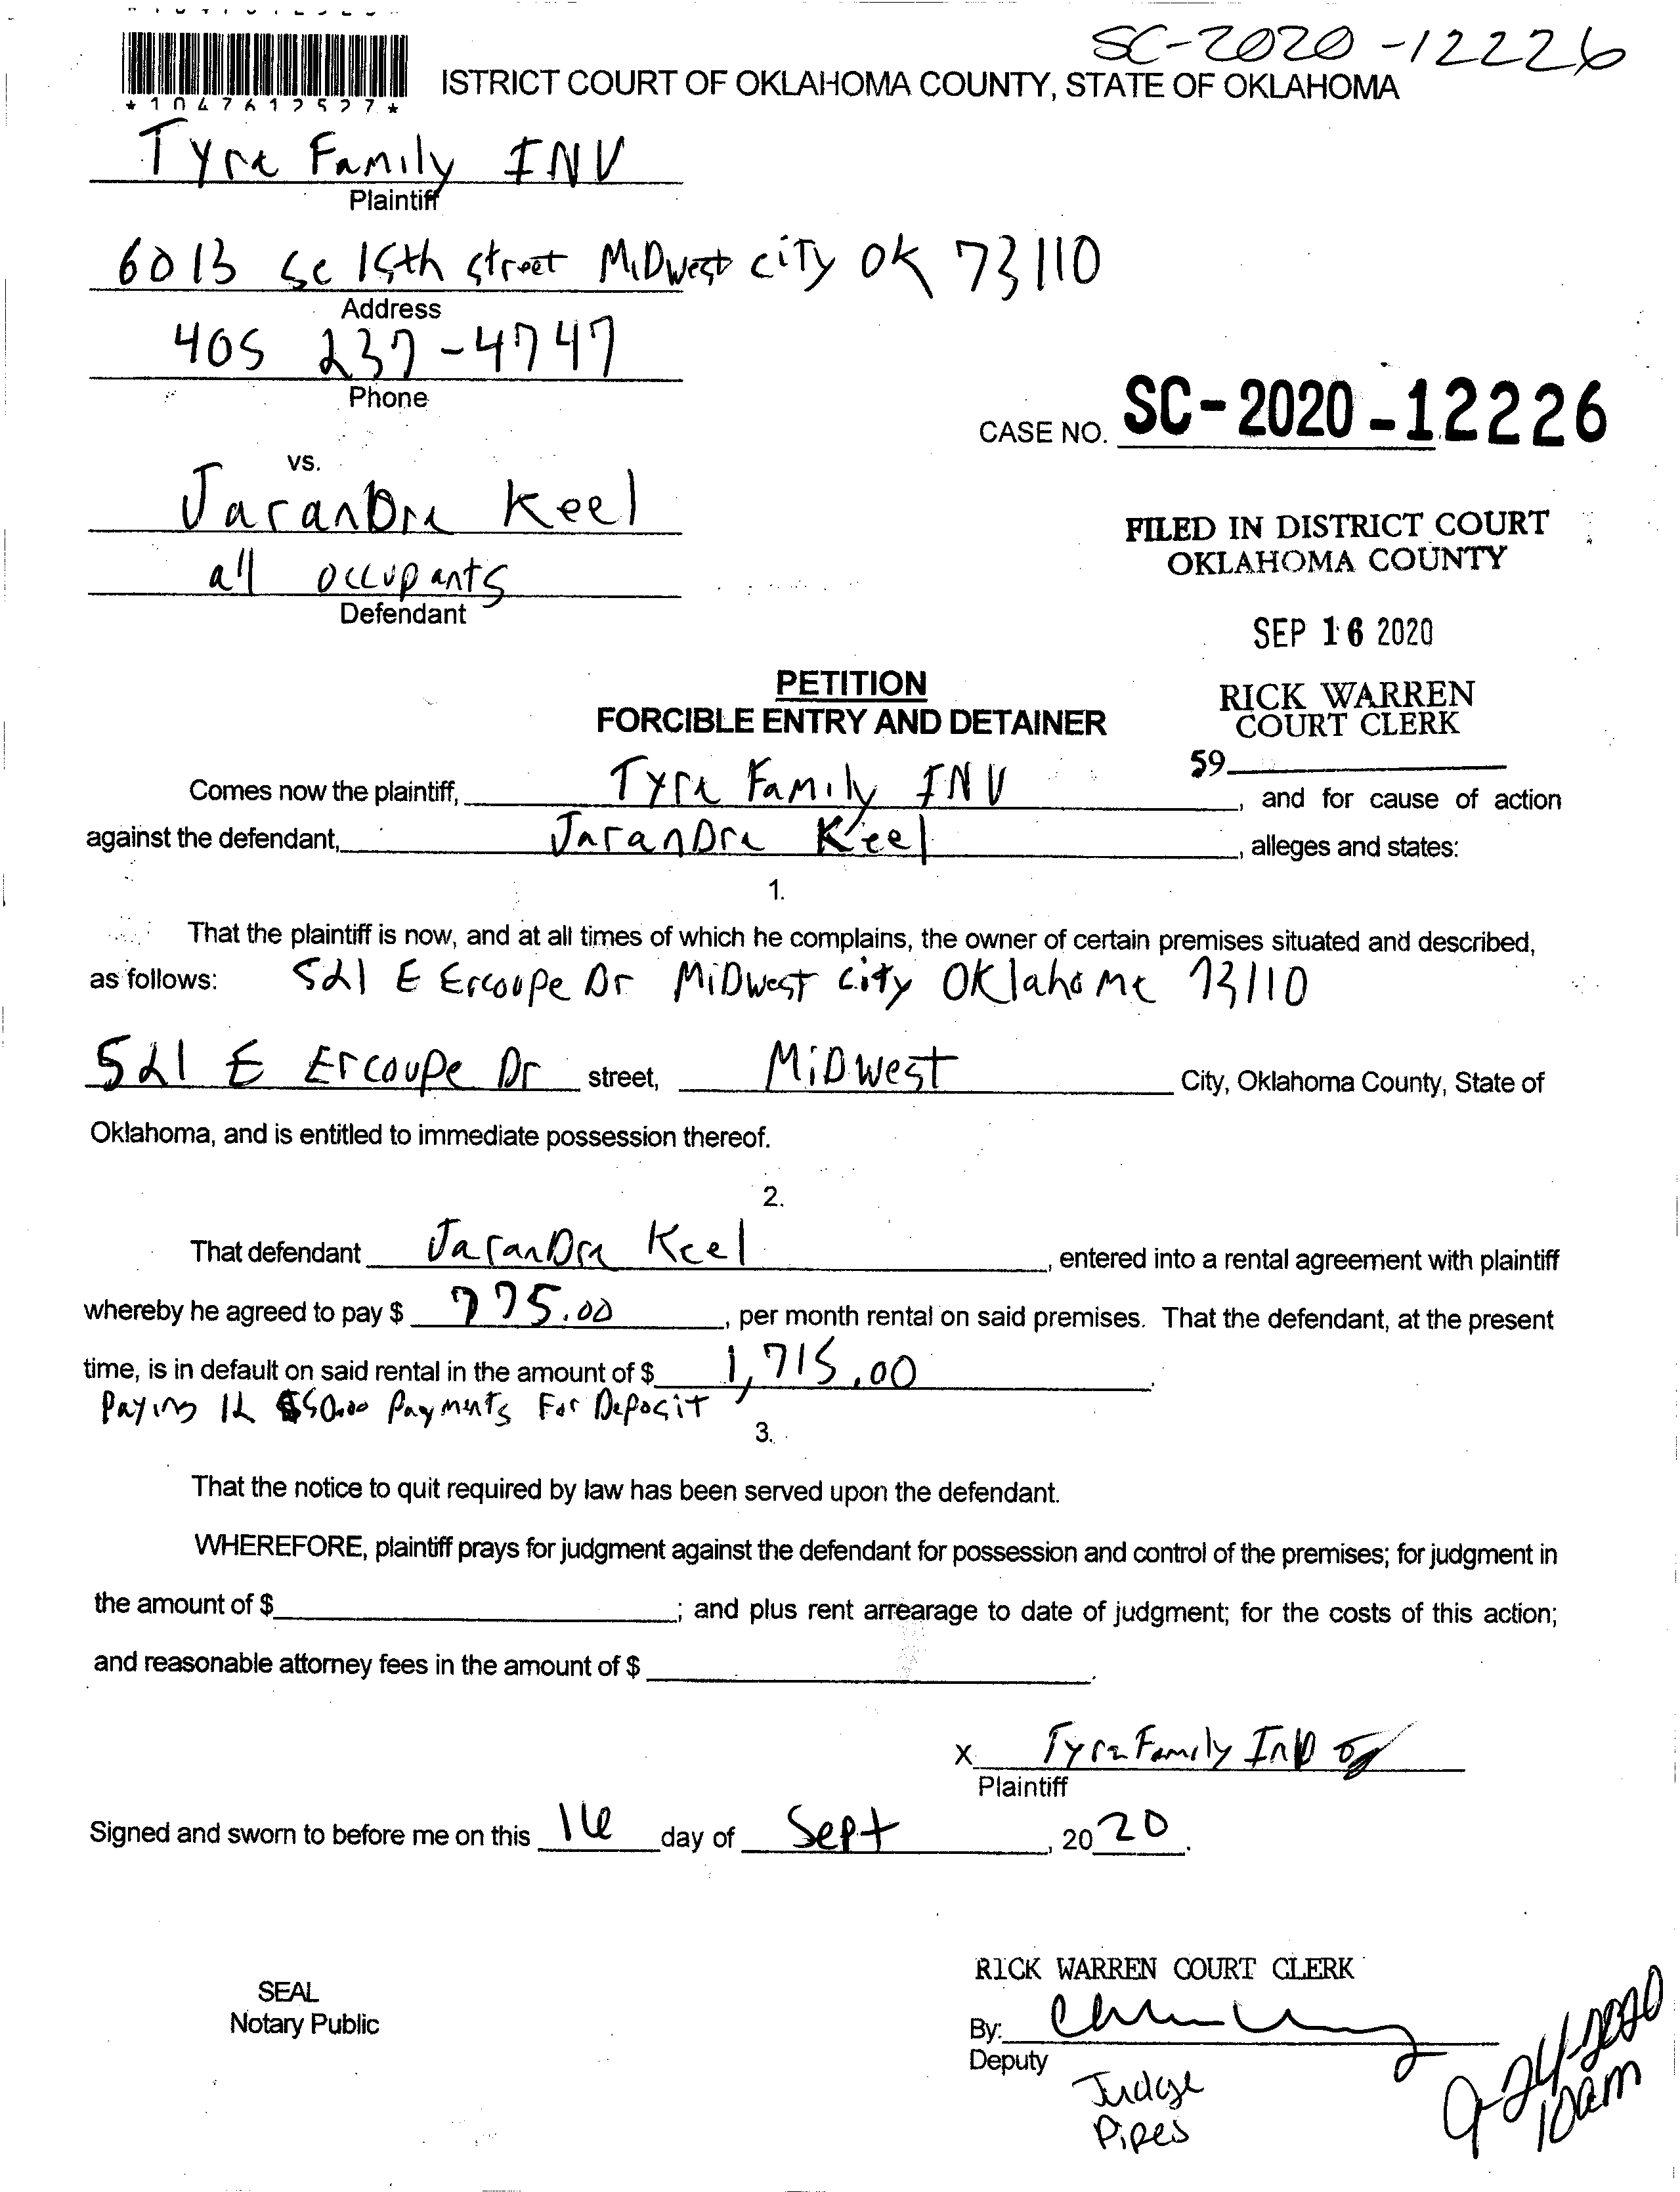 SC-2020-12226
ISTRICT COURT OF OKLAHOMA COUNTY, STATE OF OKLAHOMA
*1047612527*
Tyra Family INV
Plaintiff
6013 Se 15th street MiDwest city OK 73110
Address
405 237-4747
Phone
CASE NO. SC-2020-12226
vs.
JaranDra Keel
all occupants
Defendant
FILED IN DISTRICT COURT
OKLAHOMA COUNTY
SEP 16 2020
RICK WARREN
COURT CLERK
59
PETITION
FORCIBLE ENTRY AND DETAINER
Comes now the plaintiff, Tyra Family INV, and for cause of action
against the defendant, JaranDra Keel, alleges and states:
1.
That the plaintiff is now, and at all times of which he complains, the owner of certain premises situated and described,
as follows: 521 E Ercoupe Dr MiDwest city Oklahoma 73110
521 E Ercoupe Dr street, MiDwest City, Oklahoma County, State of
Oklahoma, and is entitled to immediate possession thereof.
2.
That defendant JaranDra Keel, entered into a rental agreement with plaintiff
whereby he agreed to pay $ 775.00, per month rental on said premises. That the defendant, at the present
time, is in default on said rental in the amount of $ 1,715.00.
Paying 12 $50.00 Payments For Deposit
3.
That the notice to quit required by law has been served upon the defendant.
WHEREFORE, plaintiff prays for judgment against the defendant for possession and control of the premises; for judgment in
the amount of $; and plus rent arrearage to date of judgment; for the costs of this action;
and reasonable attorney fees in the amount of $.
X Tyra Family Inv
Plaintiff
Signed and sworn to before me on this 16 day of Sept, 2020.
SEAL
Notary Public
RICK WARREN COURT CLERK
By:
Deputy
Judge
Pipes
9-24-2020
10am